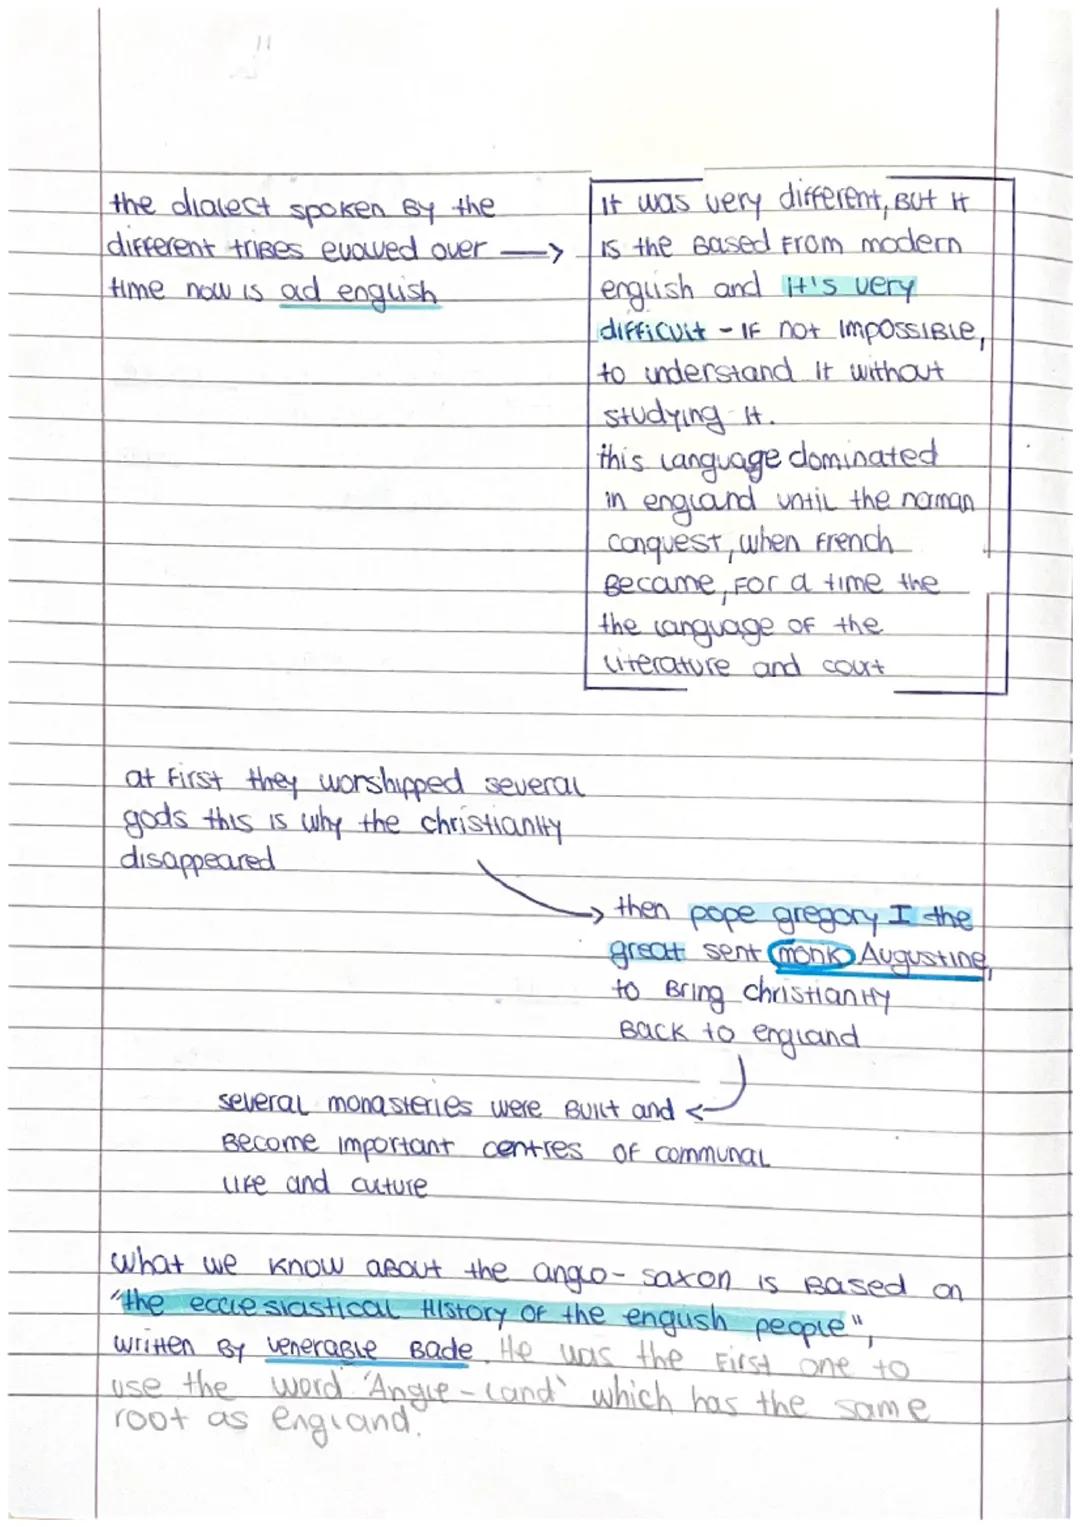 the dialect spoken By the
different triBes evolved over →
time now is old english
It was very different, But it
is the Based From modern
english and it's very
difficult - IF not impossiBle,
to understand it without
studying it.
this language dominated
in england until the norman
conquest, when French
Became, For a time the
the language of the
literature and court
at First they worshipped several
gods this is why the christianity
disappeared
then pope gregory I the
great sent monk Augustine,
to Bring christianity
Back to england
several monasteries were Built and
Become important centres of communal
life and culture
what we know aBout the anglo-saxon is Based on
"the ecclesiastical History of the english people",
written By veneraBle Bade. He was the First one to
use the word 'Angle-land' which has the same
root as england.